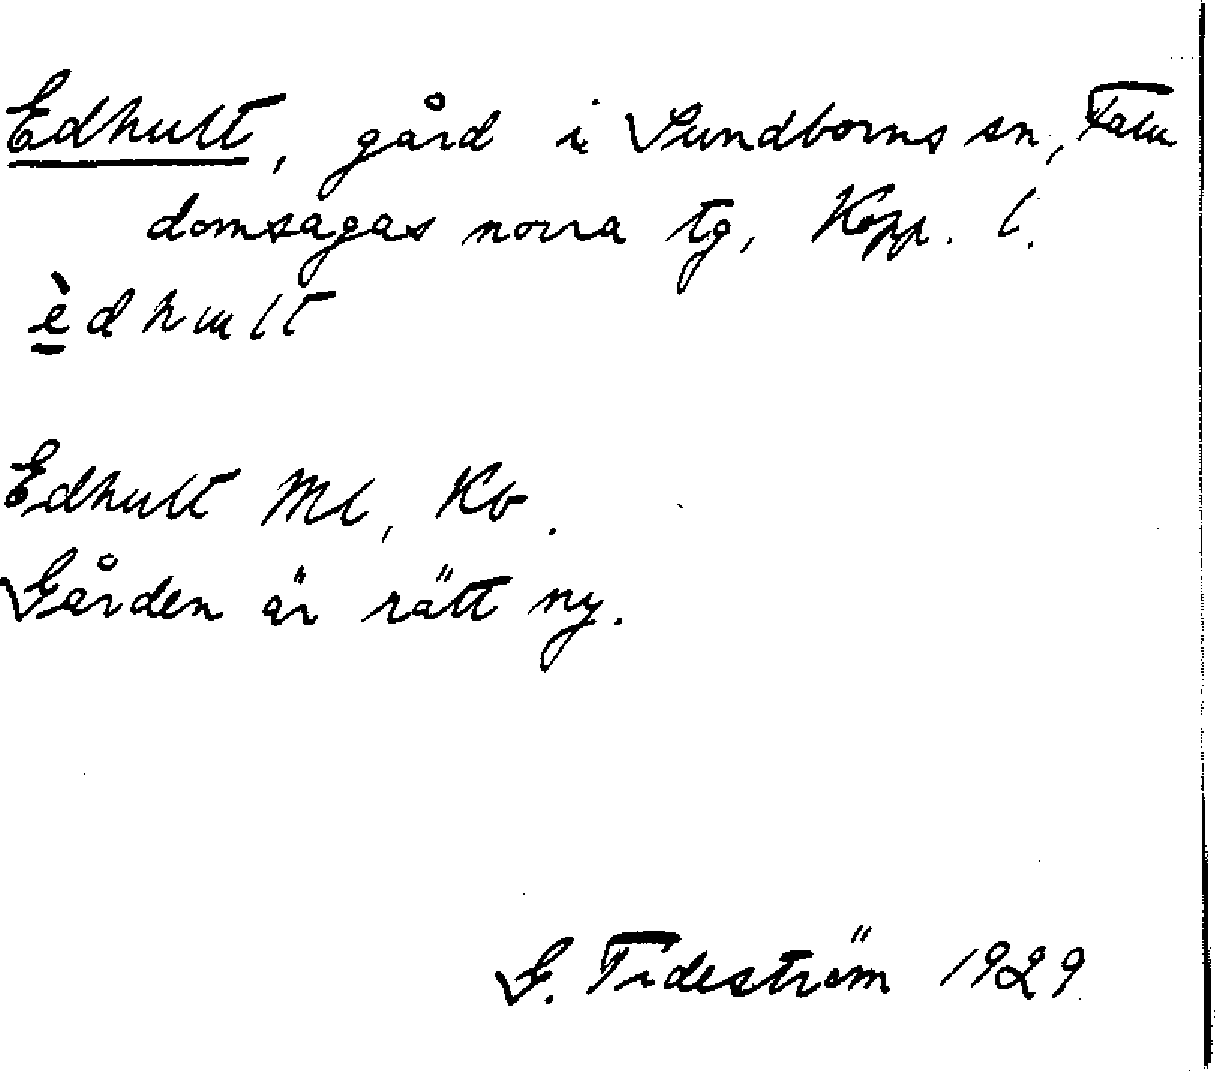 Edhult, gård i Sundborns sn, Falu
domsagas norra tg, Kopp. l.
èdhult
Edhult Ml, Kb.
Gården är rätt ny.
G. Tideström 1929